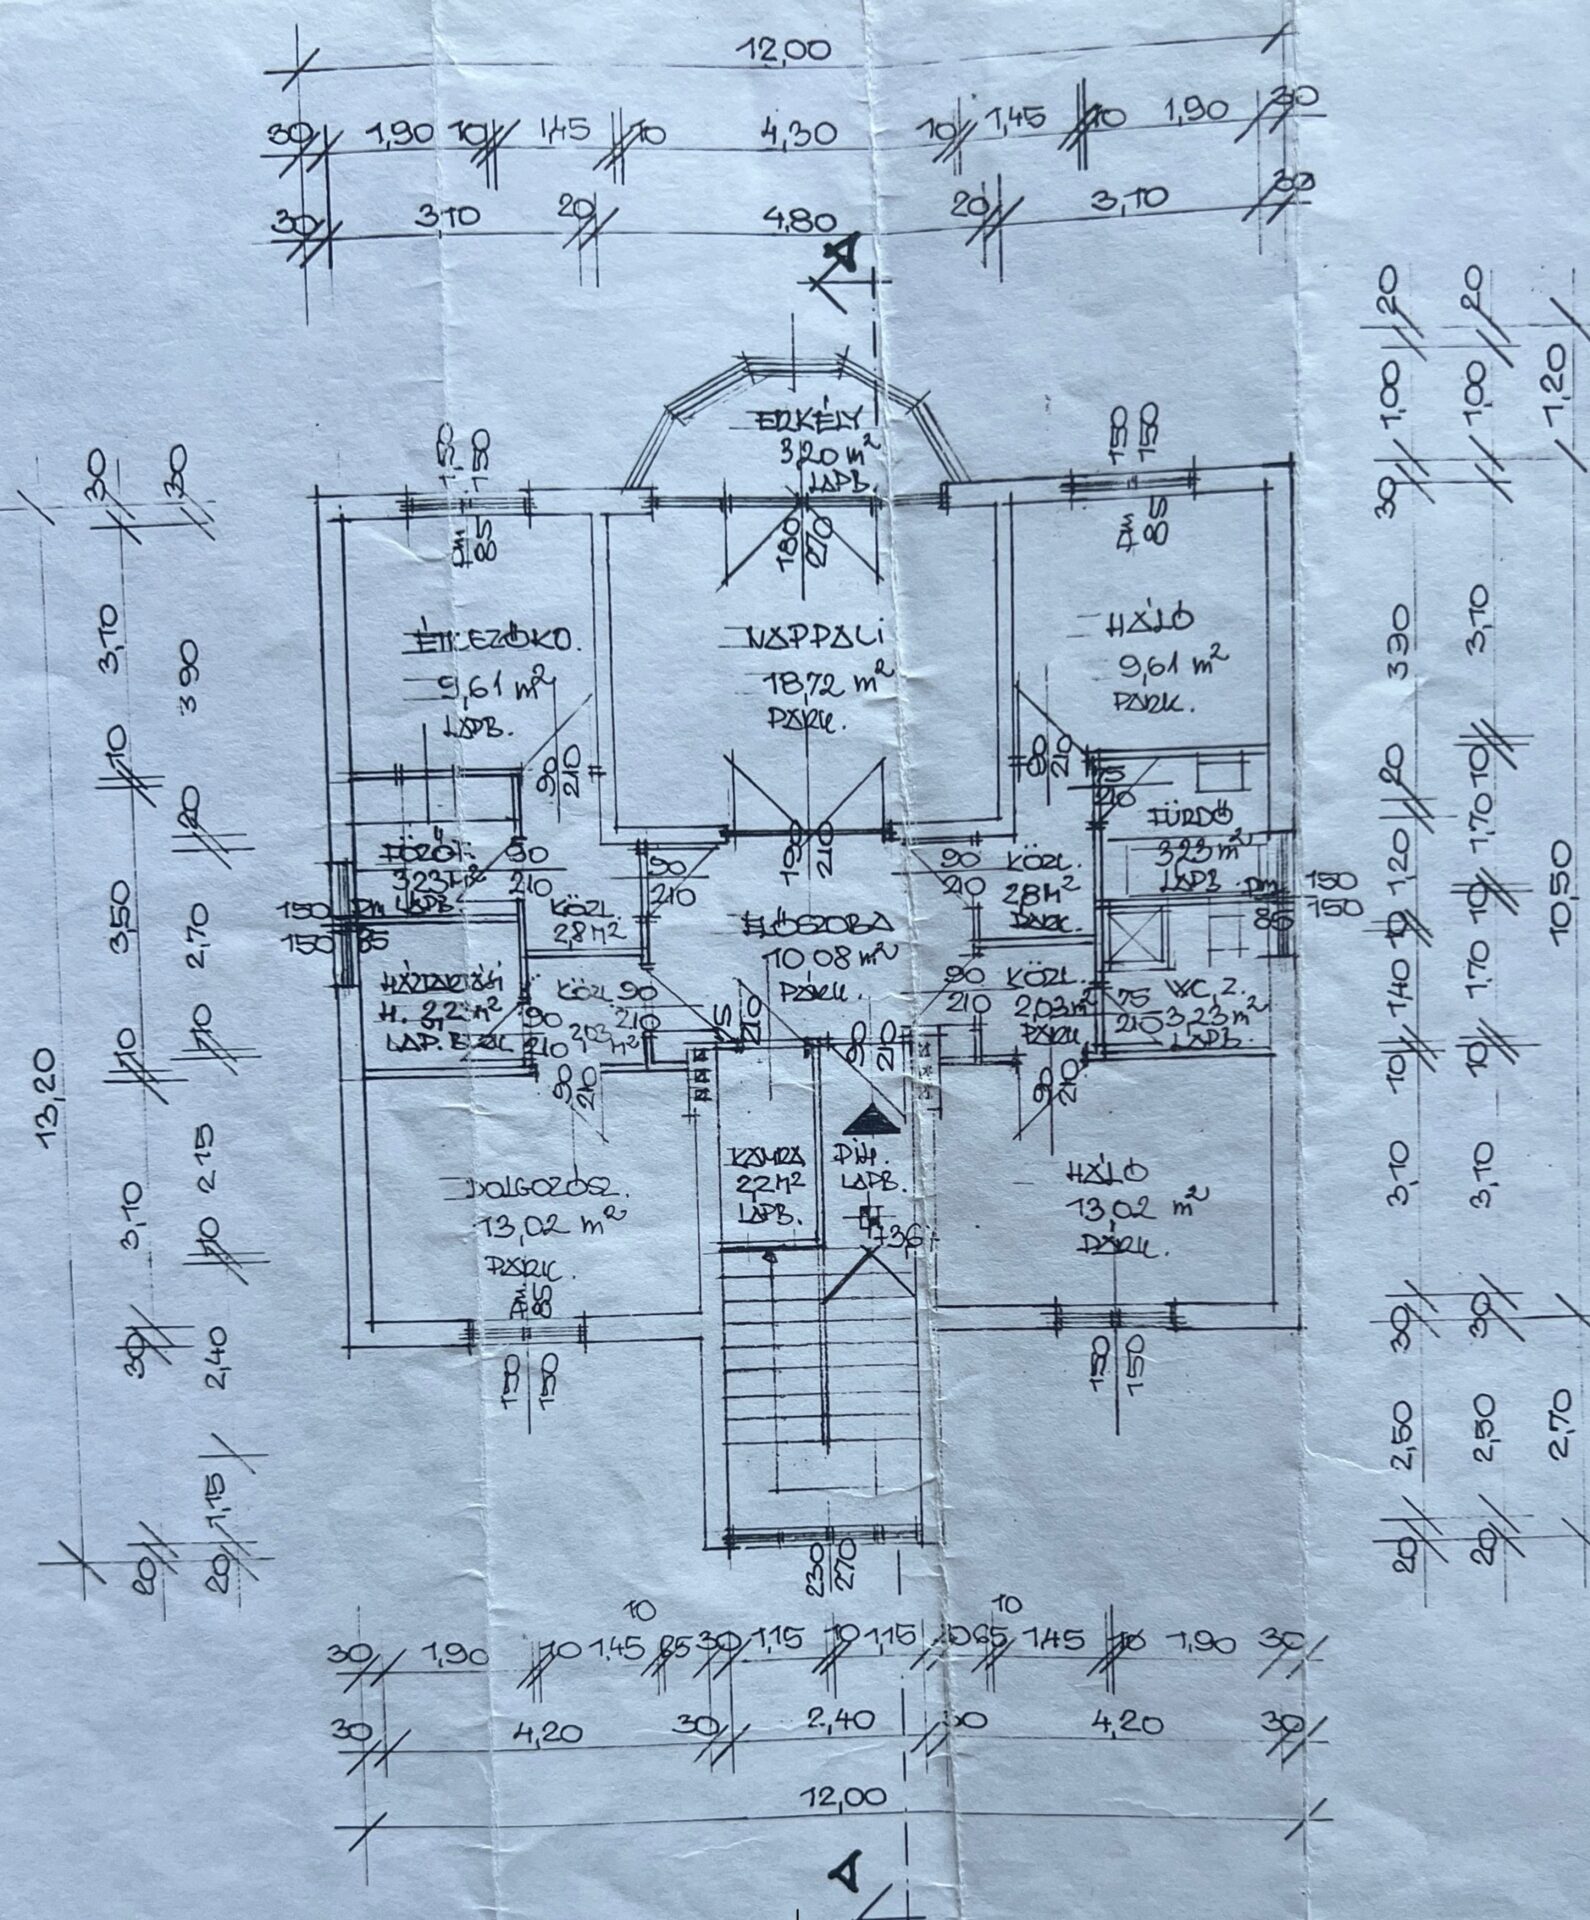 12,00
30 1,90 10 1,45 10 4,30 10 1,45 10 1,90 30
30 3,10 20 4,80 20 3,10 30
A
ERKÉLY
3,20 m²
LAPB.
150
150
Pm
85
180
270
150
150
Pm
85
ÉTKEZŐKO.
9,61 m²
LAPB.
NAPPALI
18,72 m²
PARK.
HÁLÓ
9,61 m²
PARK.
90
210
190
210
90
210
75
210
FÜRDŐ
3,23 m²
LAPB.
3,23 m²
LAPB.
90
210
90
210
90
210
KÖZL.
2,8 m²
PARK.
150
150
Pm
85
KÖZL.
2,8 m²
ELŐSZOBA
10,08 m²
PÁRK.
150
150
Pm
85
HÁZTARTÁSI
H.
m²
90
210
KÖZL.
2,03 m²
90
210
90
210
210
90
210
90
210
KÖZL.
2,03 m²
PÁRK.
75
210
WC, Z.
3,23 m²
LAPB.
90
210
DOLGOZÓSZ.
13,02 m²
PÁRK.
Pm
85
150
150
KAMRA
LAPB.
LAPB.
HÁLÓ
13,02 m²
PÁRK.
150
150
230
270
13,20
30 3,10 10 3,50 10 3,10 30 20
30 3 90 20 2,70 10 10 2 15 10 2,40 1,15 20
20 1,00 30 3 90 20 1,20 10 1,40 10 3,10 30 2,50 20
20 1,00 3,10 10 1,70 10 1,70 10 3,10 30 2,50 20
1,20 10,50 2,70
10 10
30 1,90 10 1,45 65 30 1,15 10 1,15 65 1,45 10 1,90 30
30 4,20 30 2,40 30 4,20 30
12,00
A